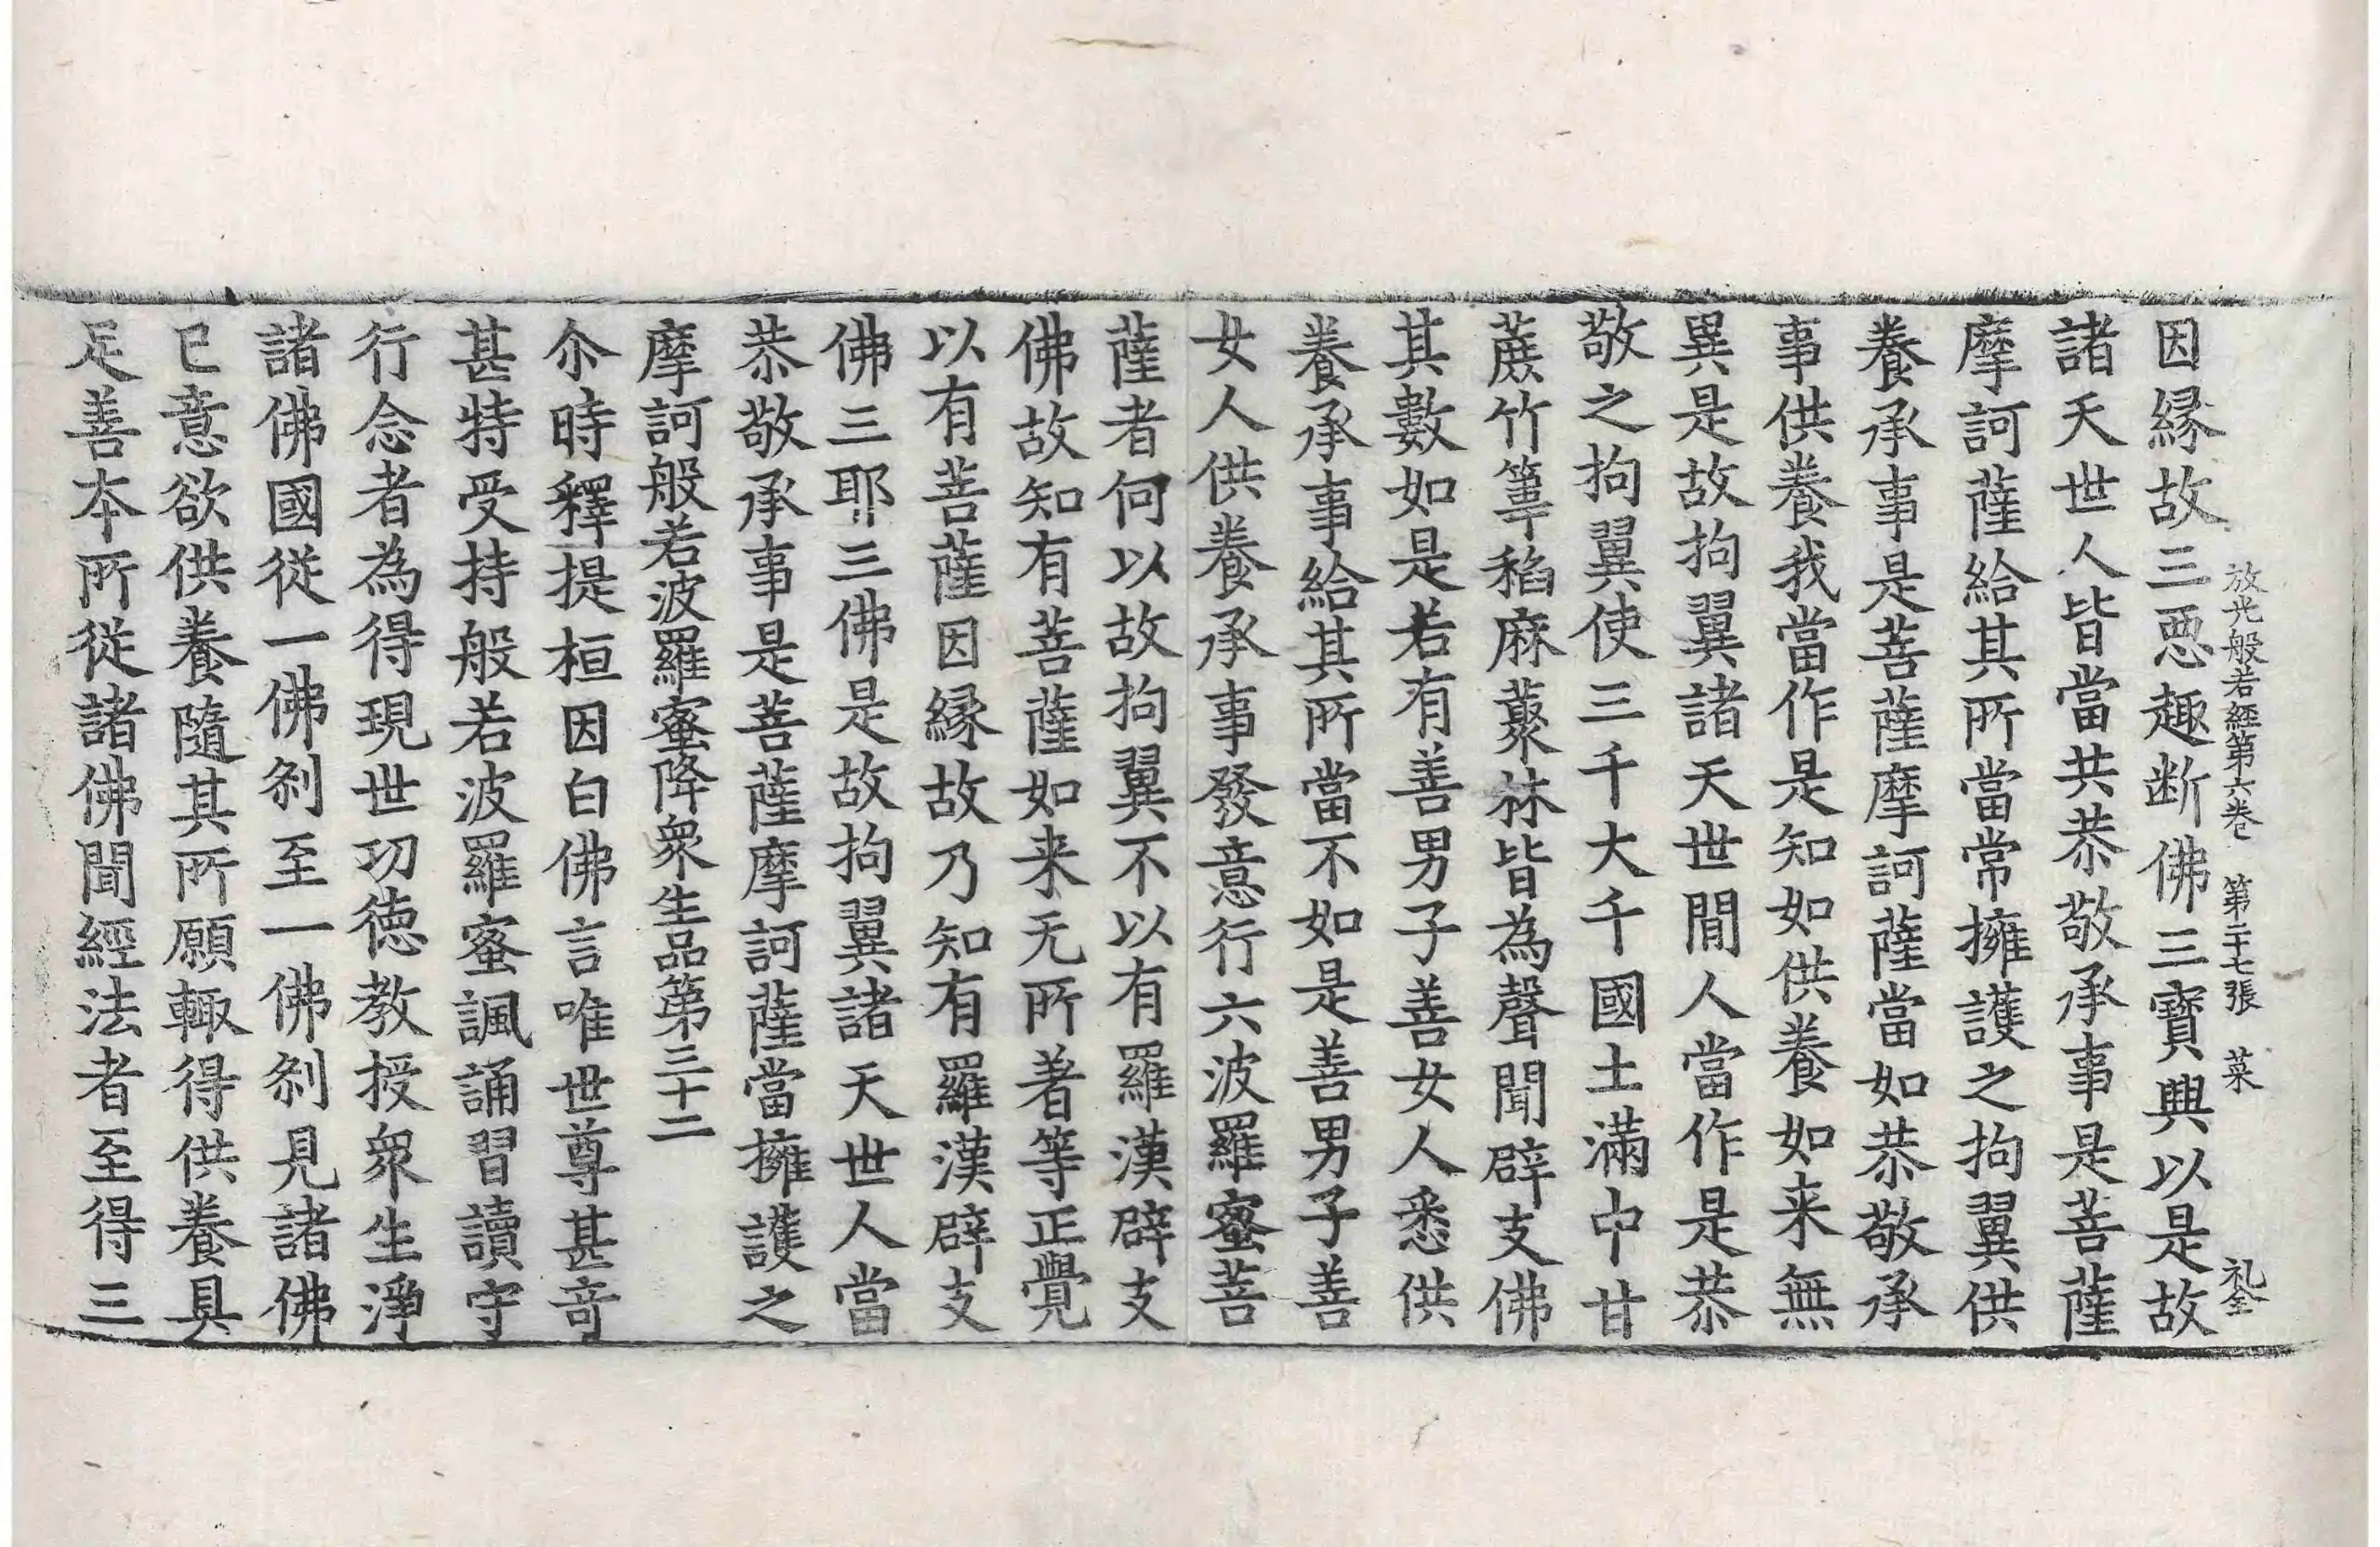 因縁故三惡趣断佛三寶興以是故
放光般若經第六卷 第二十七張 菜 礼全
諸天世人皆當共恭敬承事是菩薩
摩訶薩給其所當常擁護之拘翼供
養承事是菩薩摩訶薩當如恭敬承
事供養我當作是知如供養如来無
異是故拘翼諸天世間人當作是恭
敬之拘翼使三千大千國土滿中甘
蔗竹䓖稻麻藂林皆為聲聞辟支佛
其數如是若有善男子善女人悉供
養承事給其所當不如是善男子善
女人供養承事發意行六波羅蜜菩
薩者何以故拘翼不以有羅漢辟支
佛故知有菩薩如来无所著等正覺
以有菩薩因縁故乃知有羅漢辟支
佛三耶三佛是故拘翼諸天世人當
恭敬承事是菩薩摩訶薩當擁護之
摩訶般若波羅蜜降衆生品第三十二
尒時釋提桓因白佛言唯世尊甚竒
甚特受持般若波羅蜜諷誦習讀守
行念者為得現世功徳教授衆生淨
諸佛國従一佛刹至一佛刹見諸佛
已意欲供養隨其所願輙得供養具
足善本所従諸佛聞經法者至得三